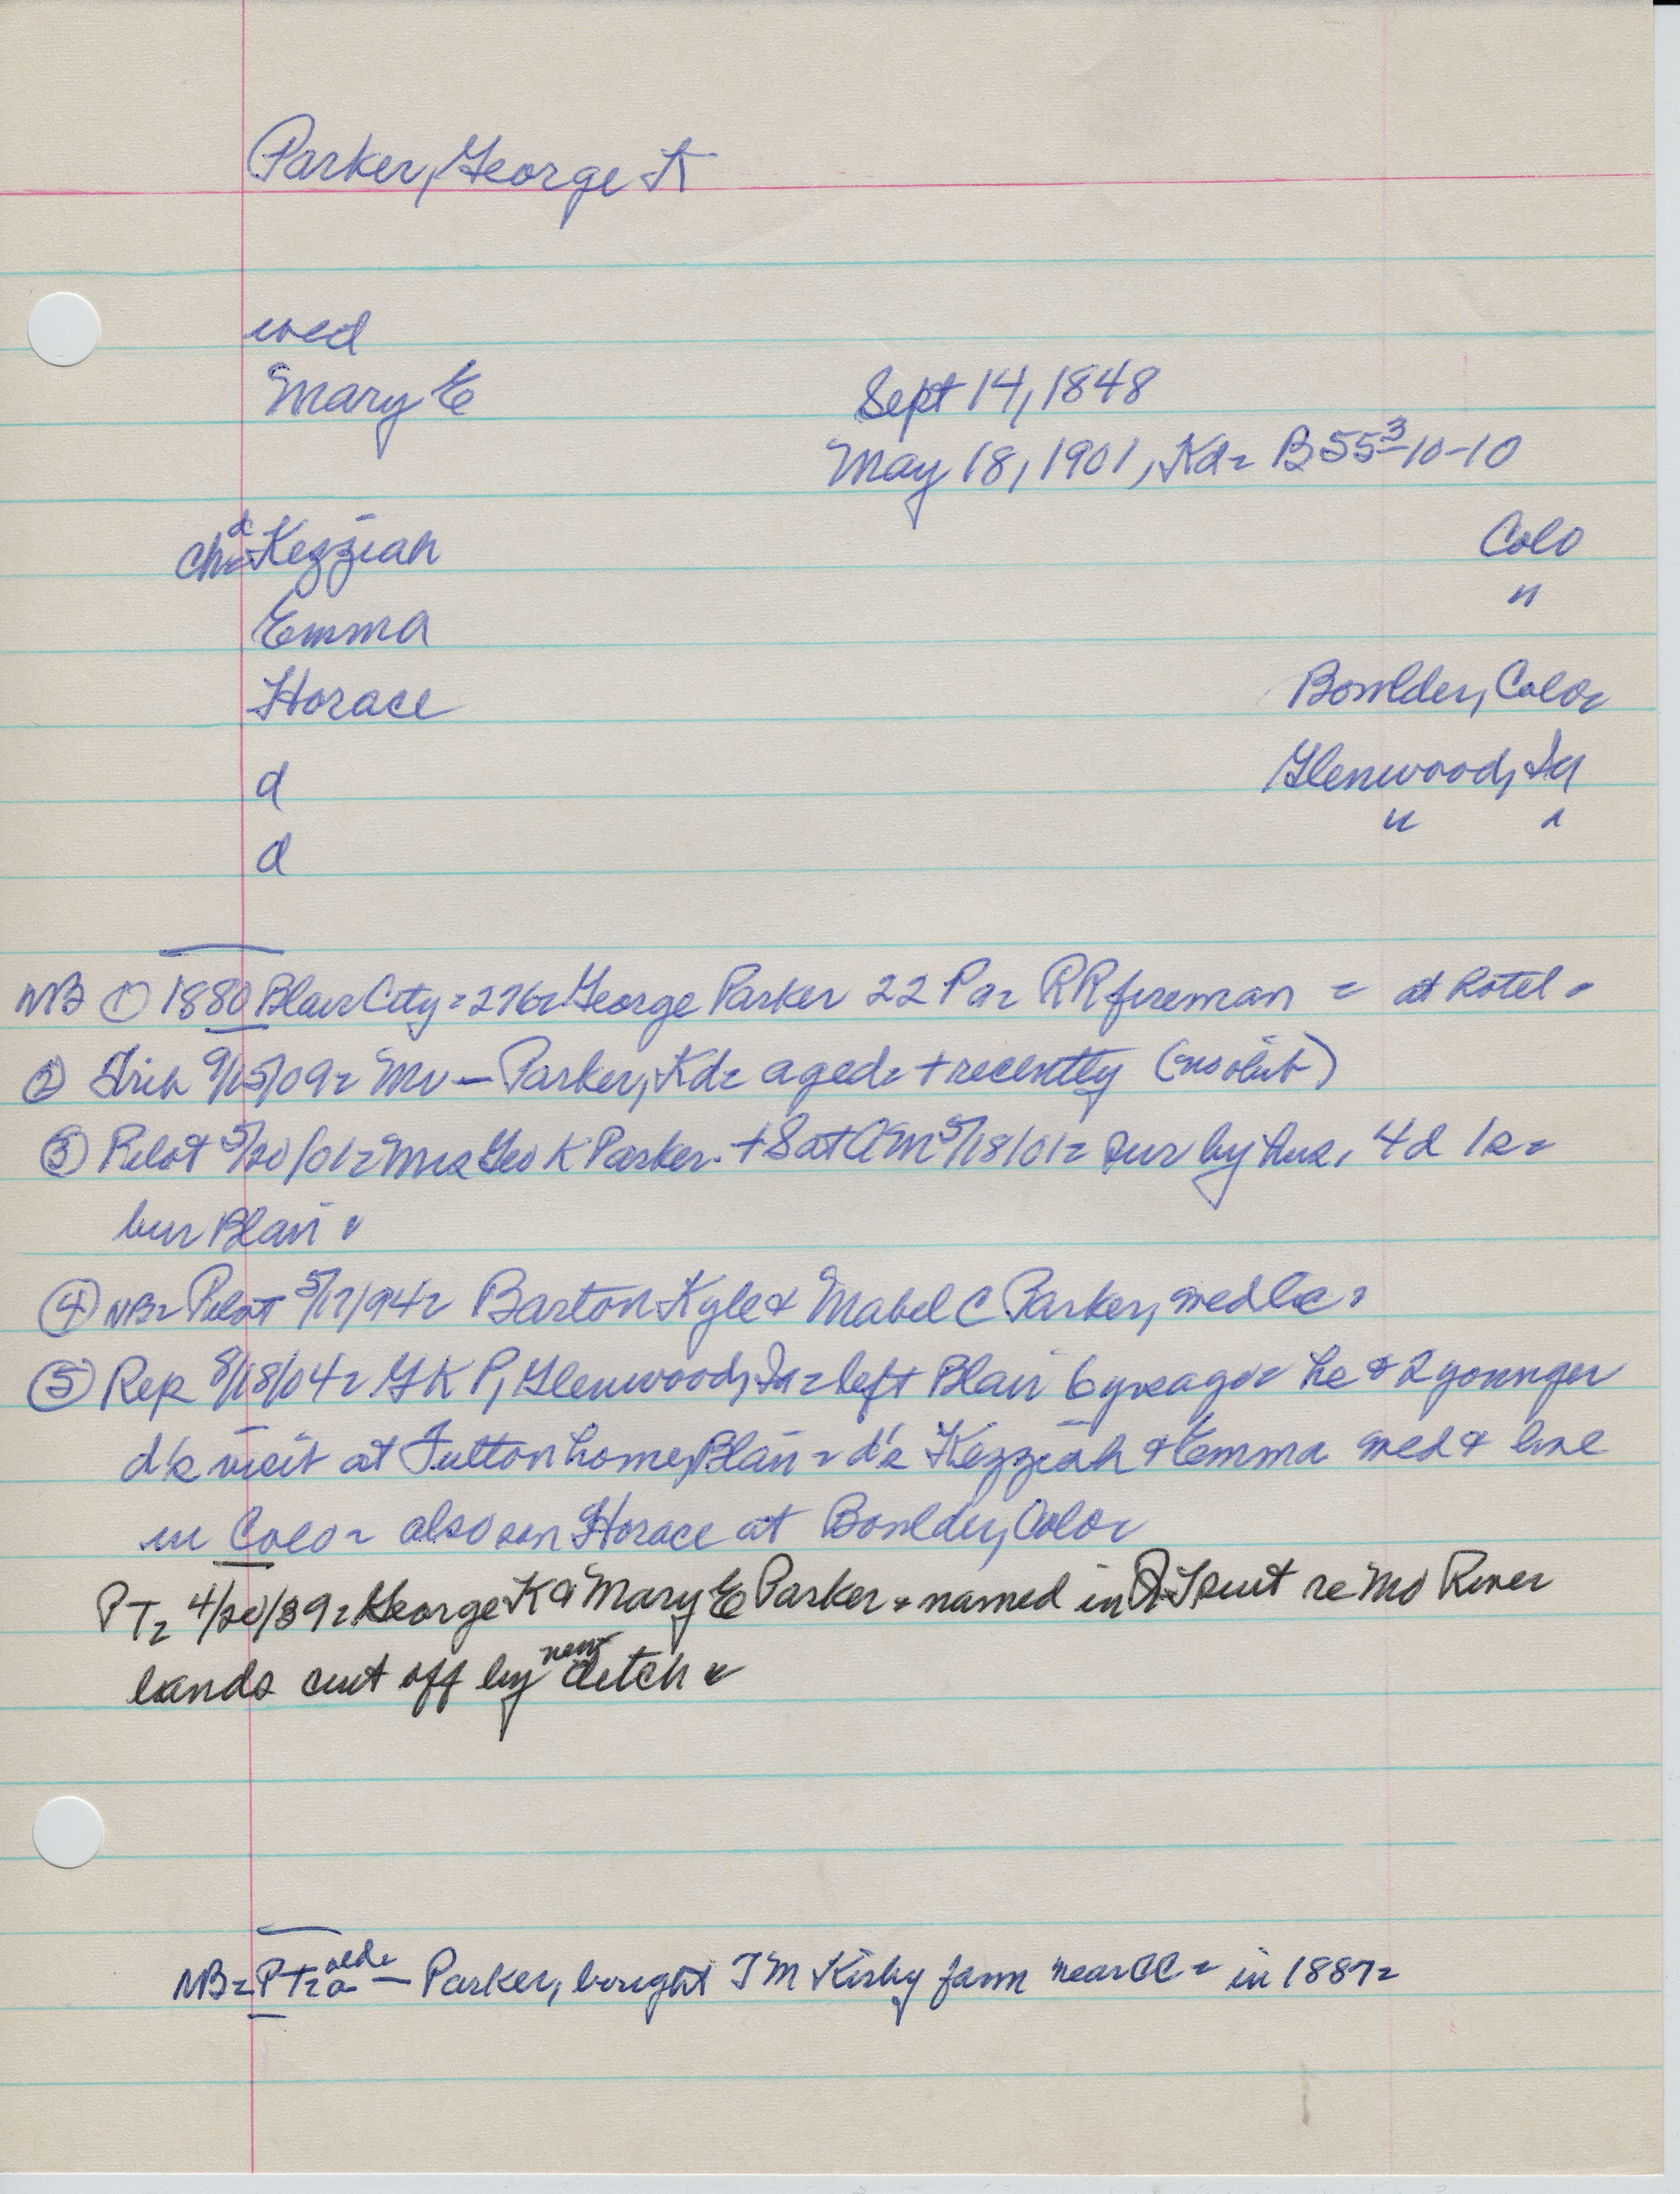 Parker, George K
wed
Mary E
Sept 14, 1848
May 18, 1901, Kd= B 55³-10-10
d
ch= Kezziah Colo
Emma "
Horace Boulder, Colo=
d Glenwood, Ia
d " "
NB ① 1880 Blair City= 276= George Parker 22 Pa= RR fireman = at hotel=
② 9/15/09= Mr — Parker, Kd= aged= + recently (no obit)
③ Pilot 5/20/01= Mrs Geo K Parker. + Sat AM 5/18/01= sur by hus, 4d 1s=
bur Blair=
④ NB= Pilot 5/17/94= Barton Kyle & Mabel C Parker, med lic=
⑤ Rep 8/18/04= G K P, Glenwood, Ia= left Blair 6 yrs ago= he & 2 younger
d's visit at Fulton home, Blair= d's Kezziah & Emma med & live
in Colo= also son Horace at Boulder, Colo=
PT= 4/20/89= George K & Mary E Parker= named in suit re Mo River
lands cut off by new ditch=
NB= PT= — Parker, bought J M Kirby farm near CC= in 1887=